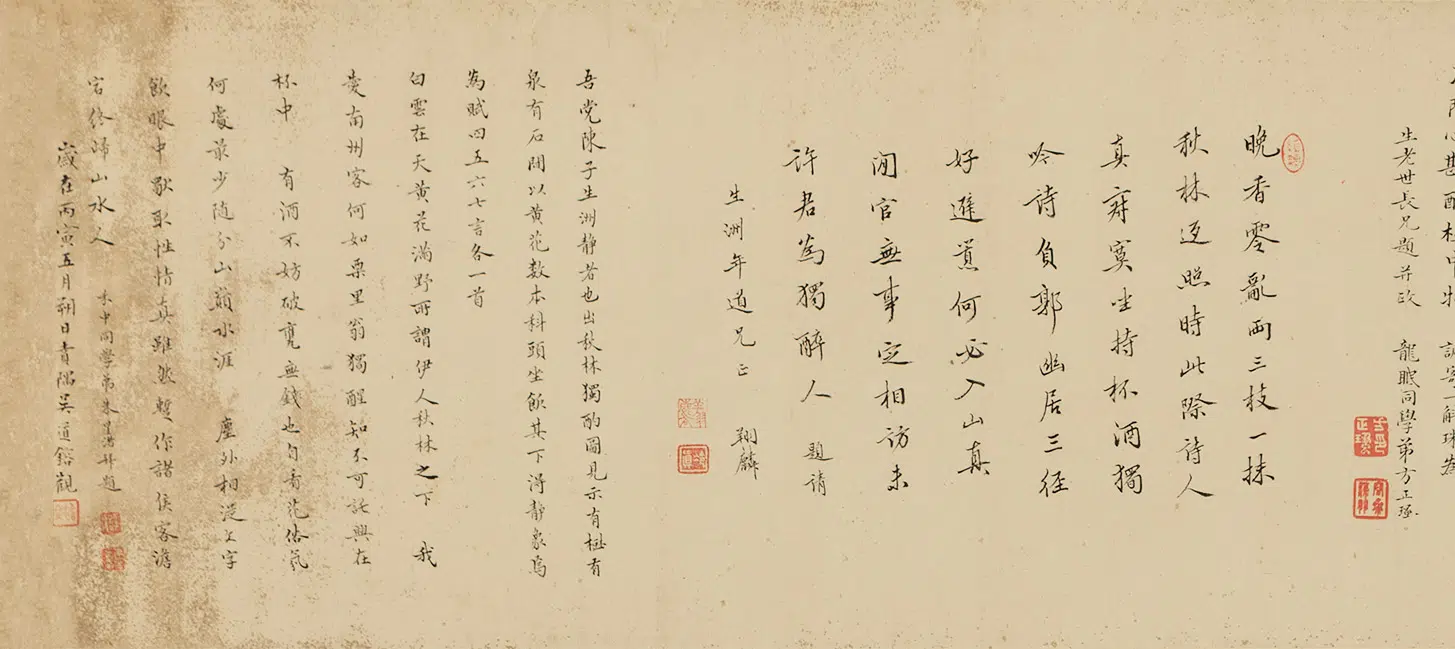 生老世長兄題并政 龍眠同學弟方正琢
晚香零亂兩三枝一抹
秋林返照時此際詩人
真寂寞坐持杯酒獨
吟詩負郭幽居三徑
好避囂何必入山真
閒官無事定相訪未
許君為獨醉人 題請
生洲年道兄正 翔麟
吾党陳子生洲靜者也出秋林獨酌圖見示有樾有
泉有石間以黃花数本科頭坐飲其下淂靜象焉
為賦四五六七言各一首
白雲在天黃花滿野所謂伊人秋林之下 我
愛南州客何如栗里翁獨醒知不可託興在
杯中 有酒不妨破寬無錢也自看花俗氣
何處最少随分山巔水涯 塵外相從
飲眼中歌取性情真雖然暫作諸侯客澹
宕終歸山水人 禾中同學弟朱 題
歲在丙寅五月朔日賁隅吳道鎔觀